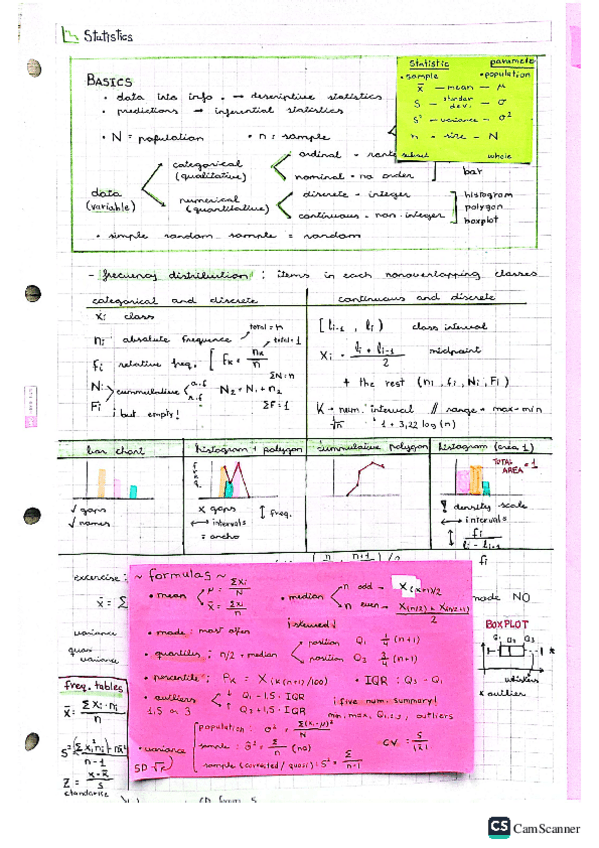 Statistics
BASICS
• data into info. → descriptive statistics
• predictions → inferential statistics
• N = population • n = sample
Statistic parameter
• sample • population
x̄ — mean — μ
S — standar devi. — σ
S² — variance — σ²
n — size — N
subset whole
data (variable)
categorical (qualitative)
ordinal -
nominal - no order
bar
numerical (quantitative)
discrete - integer
continuous - non-integer
histogram
polygon
boxplot
• simple random sample = random
- frecuency distribution : items in each nonoverlapping classes
categorical and discrete
xi class
ni absolute frequence total = n
fi relative freq. [ Fk = nk/n total = 1
Ni
Fi
cummulative a.f r.f
N2 = N1 + n2
ΣN = n
ΣF = 1
¡ but empty!
continuous and discrete
[ li-1 , li ) class interval
Xi = li + li-1 / 2 midpoint
+ the rest (ni, fi, Ni, Fi)
K → num. interval // range → max-min
√n 1 + 3,22 log (n)
bar chart
✓ gaps
✓ names
histogram + polygon
freq.
x gaps
↔ intervals
= ancho
↕ freq.
cummulative polygon
histogram (area 1)
TOTAL AREA = 1
! density scale
↔ intervals
↕ fi / li - li-1
fi
excercise:
x̄ = Σ
variance
quasi variance
~ formulas ~
• mean
μ = Σxi / N
x̄ = Σxi / n
• median
n odd → X(n+1)/2
n even → X(n/2) + X(n/2+1) / 2
¡skewed!
• mode : most often
• quantiles : n/2 → median
position Q1 1/4 (n+1)
position Q3 3/4 (n+1)
• percentile : Pk = X(k(n+1)/100)
• IQR : Q3 - Q1
• outliers
1,5 or 3
↓ Q1 - 1,5 · IQR
↑ Q3 + 1,5 · IQR
¡ five num. summary!
min, max, Q1,2,3 , outliers
• variance
SD √
population : σ² = Σ(xi-μ)² / N
sample : σ̂² = Σ/n (no)
sample (corrected / quasi) : S² = Σ/n-1
CV = S / |x̄|
mode NO
BOXPLOT
Q1 Q2 Q3
whiskers
x outlier
freq. tables
x̄ = Σxi · ni / n
n-1
Z = x - x̄ / S
CS CamScanner